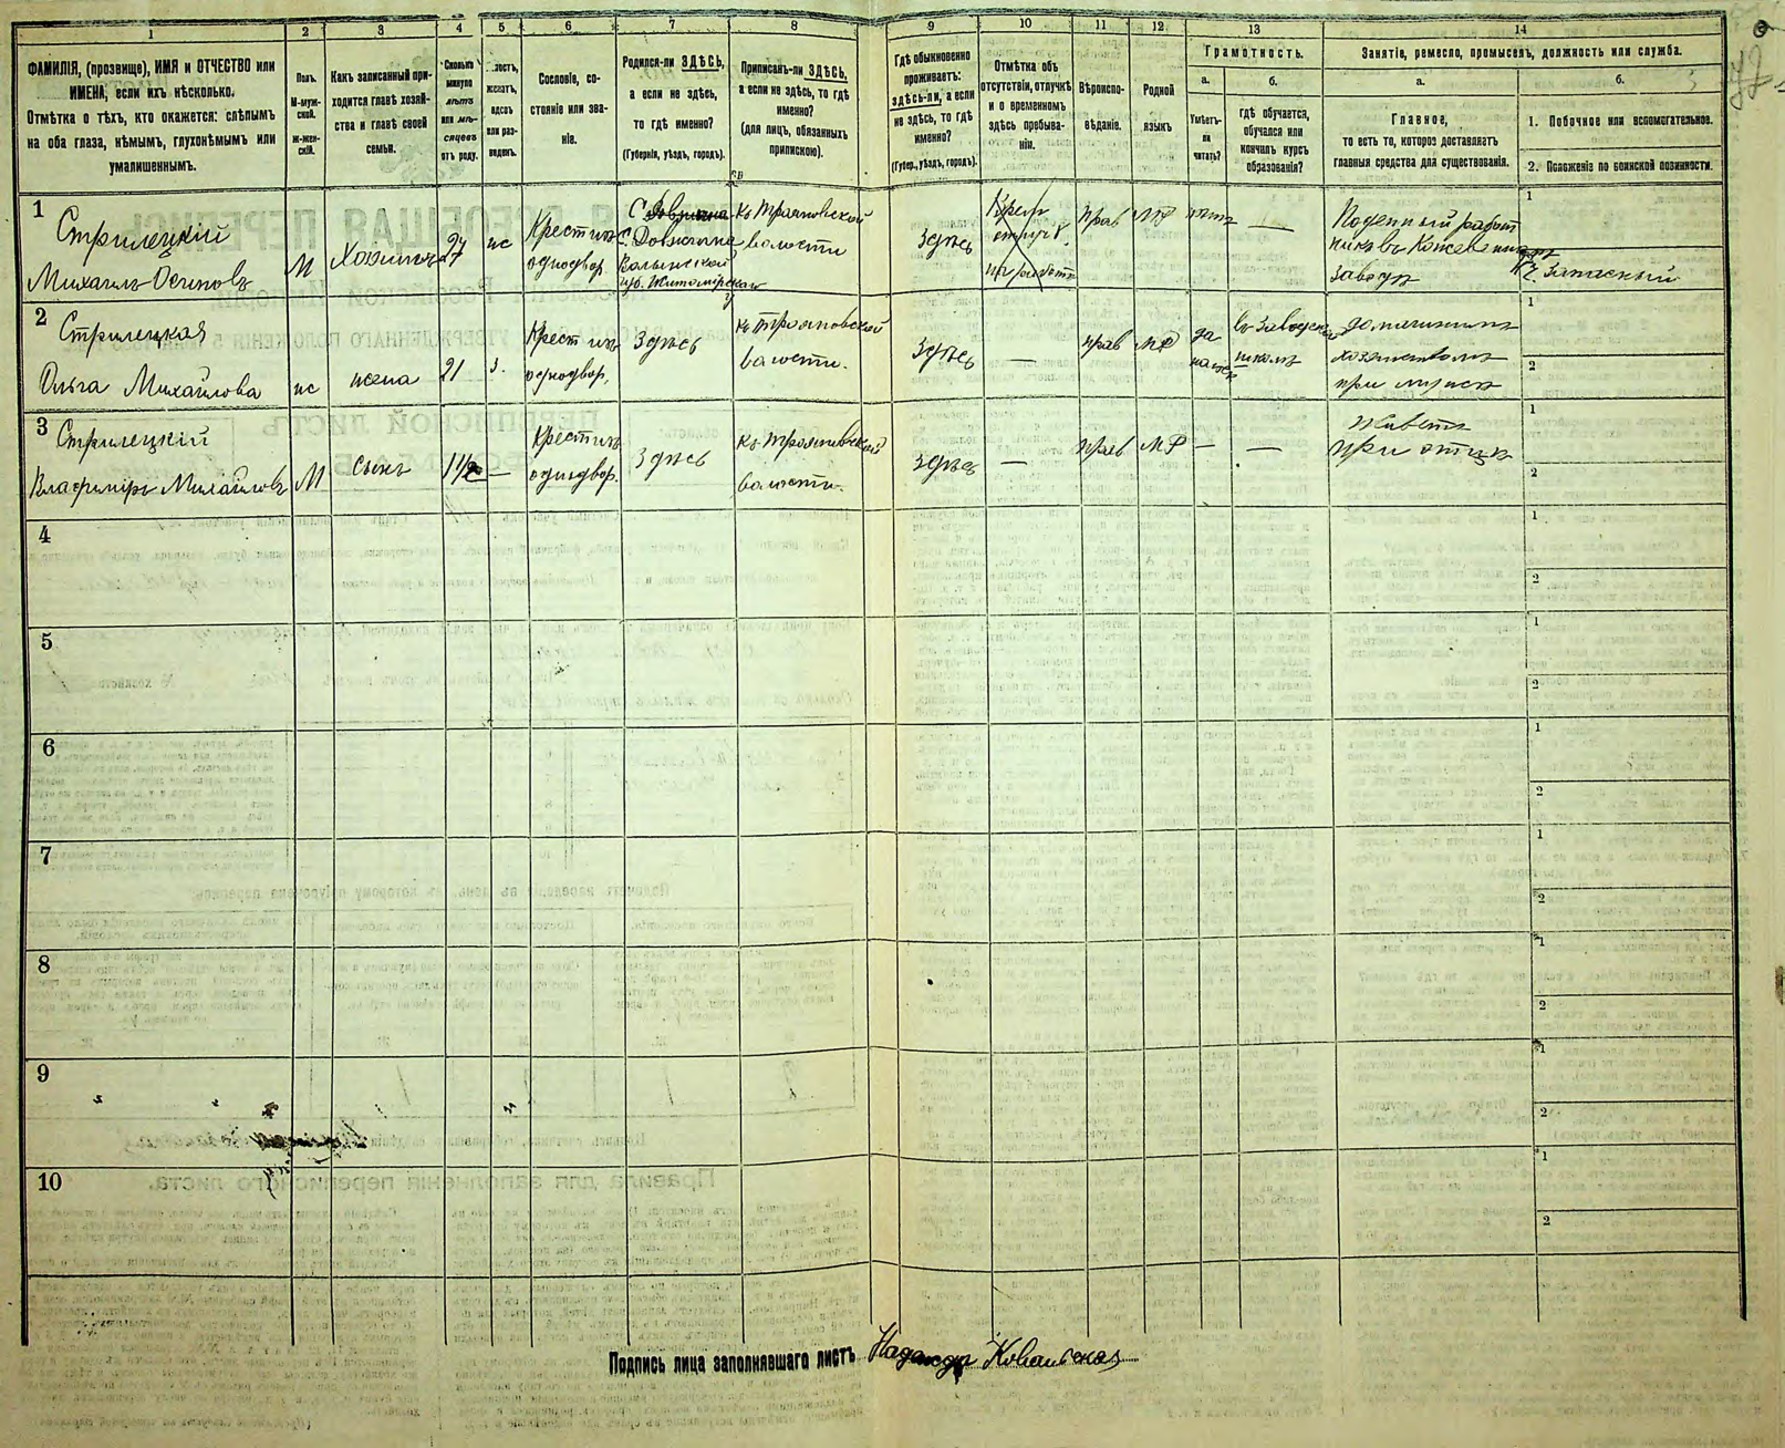 1 2 3 4 5 6 7 8 9 10 11 12 13 14
ФАМИЛІЯ, (прозвище), ИМЯ и ОТЧЕСТВО или
ИМЕНА, если ихъ нѣсколько.
Отмѣтка о тѣхъ, кто окажется: слѣпымъ
на оба глаза, нѣмымъ, глухонѣмымъ или
умалишеннымъ.
Полъ.
М-муж-
ской.
Ж-жен-
скій.
Какъ записанный при-
ходится главѣ хозяй-
ства и главѣ своей
семьи.
Сколько
минуло
лѣтъ
или мѣ-
сяцевъ
отъ роду.
женатъ,
вдовъ
или раз-
веденъ.
Сословіе, со-
стояніе или зва-
ніе.
Родился-ли ЗДѢСЬ,
а если не здѣсь,
то гдѣ именно?
(Губернія, уѣздъ, городъ).
Приписанъ-ли ЗДѢСЬ,
а если не здѣсь, то гдѣ
именно?
(для лицъ, обязанныхъ
припискою).
Гдѣ обыкновенно
проживаетъ:
здѣсь-ли, а если
не здѣсь, то гдѣ
именно?
(Губер., уѣздъ, городъ).
Отмѣтка объ
отсутствіи, отлучкѣ
и о временномъ
здѣсь пребыва-
ніи.
Вѣроиспо-
вѣданіе.
Родной
языкъ
Грамотность.
а.
Умѣетъ-
ли
читать?
б.
гдѣ обучается,
обучался или
кончилъ курсъ
образованія?
Занятіе, ремесло, промыселъ, должность или служба.
а.
Главное,
то есть то, которое доставляетъ
главныя средства для существованія.
б.
1. Побочное или вспомогательное.
2. Положеніе по воинской повинности.
1
Стрилецкій
Михаилъ Осиповъ
М
Хозяинъ
27
ж
Крестьян
однодвор
С. Довжина
Волынской
губ. Житомірскаго
къ Трояновской
волости
Здѣсь
прав
МР
нѣтъ
—
Поденный работ
никъ въ Кожевенномъ
заводѣ
1
2. Запасный
2
Стрилецкая
Ольга Михайлова
ж
жена
21
з.
Крестьян
однодвор.
Здѣсь
къ Трояновской
волости.
Здѣсь
—
прав
МР
да
школѣ
домашнимъ
хозяйствомъ
при мужѣ
1
2
3
Стрилецкій
Владиміръ Михайловъ
М
сынъ
1 1/2
—
Крестьян
однодвор.
Здѣсь
къ Трояновской
волости.
Здѣсь
—
прав
МР
—
—
Живетъ
при отцѣ
1
2
4
1
2
5
1
2
6
1
2
7
1
2
8
1
2
9
1
2
10
1
2
Подпись лица заполнявшаго листъ Надежда Ковальская